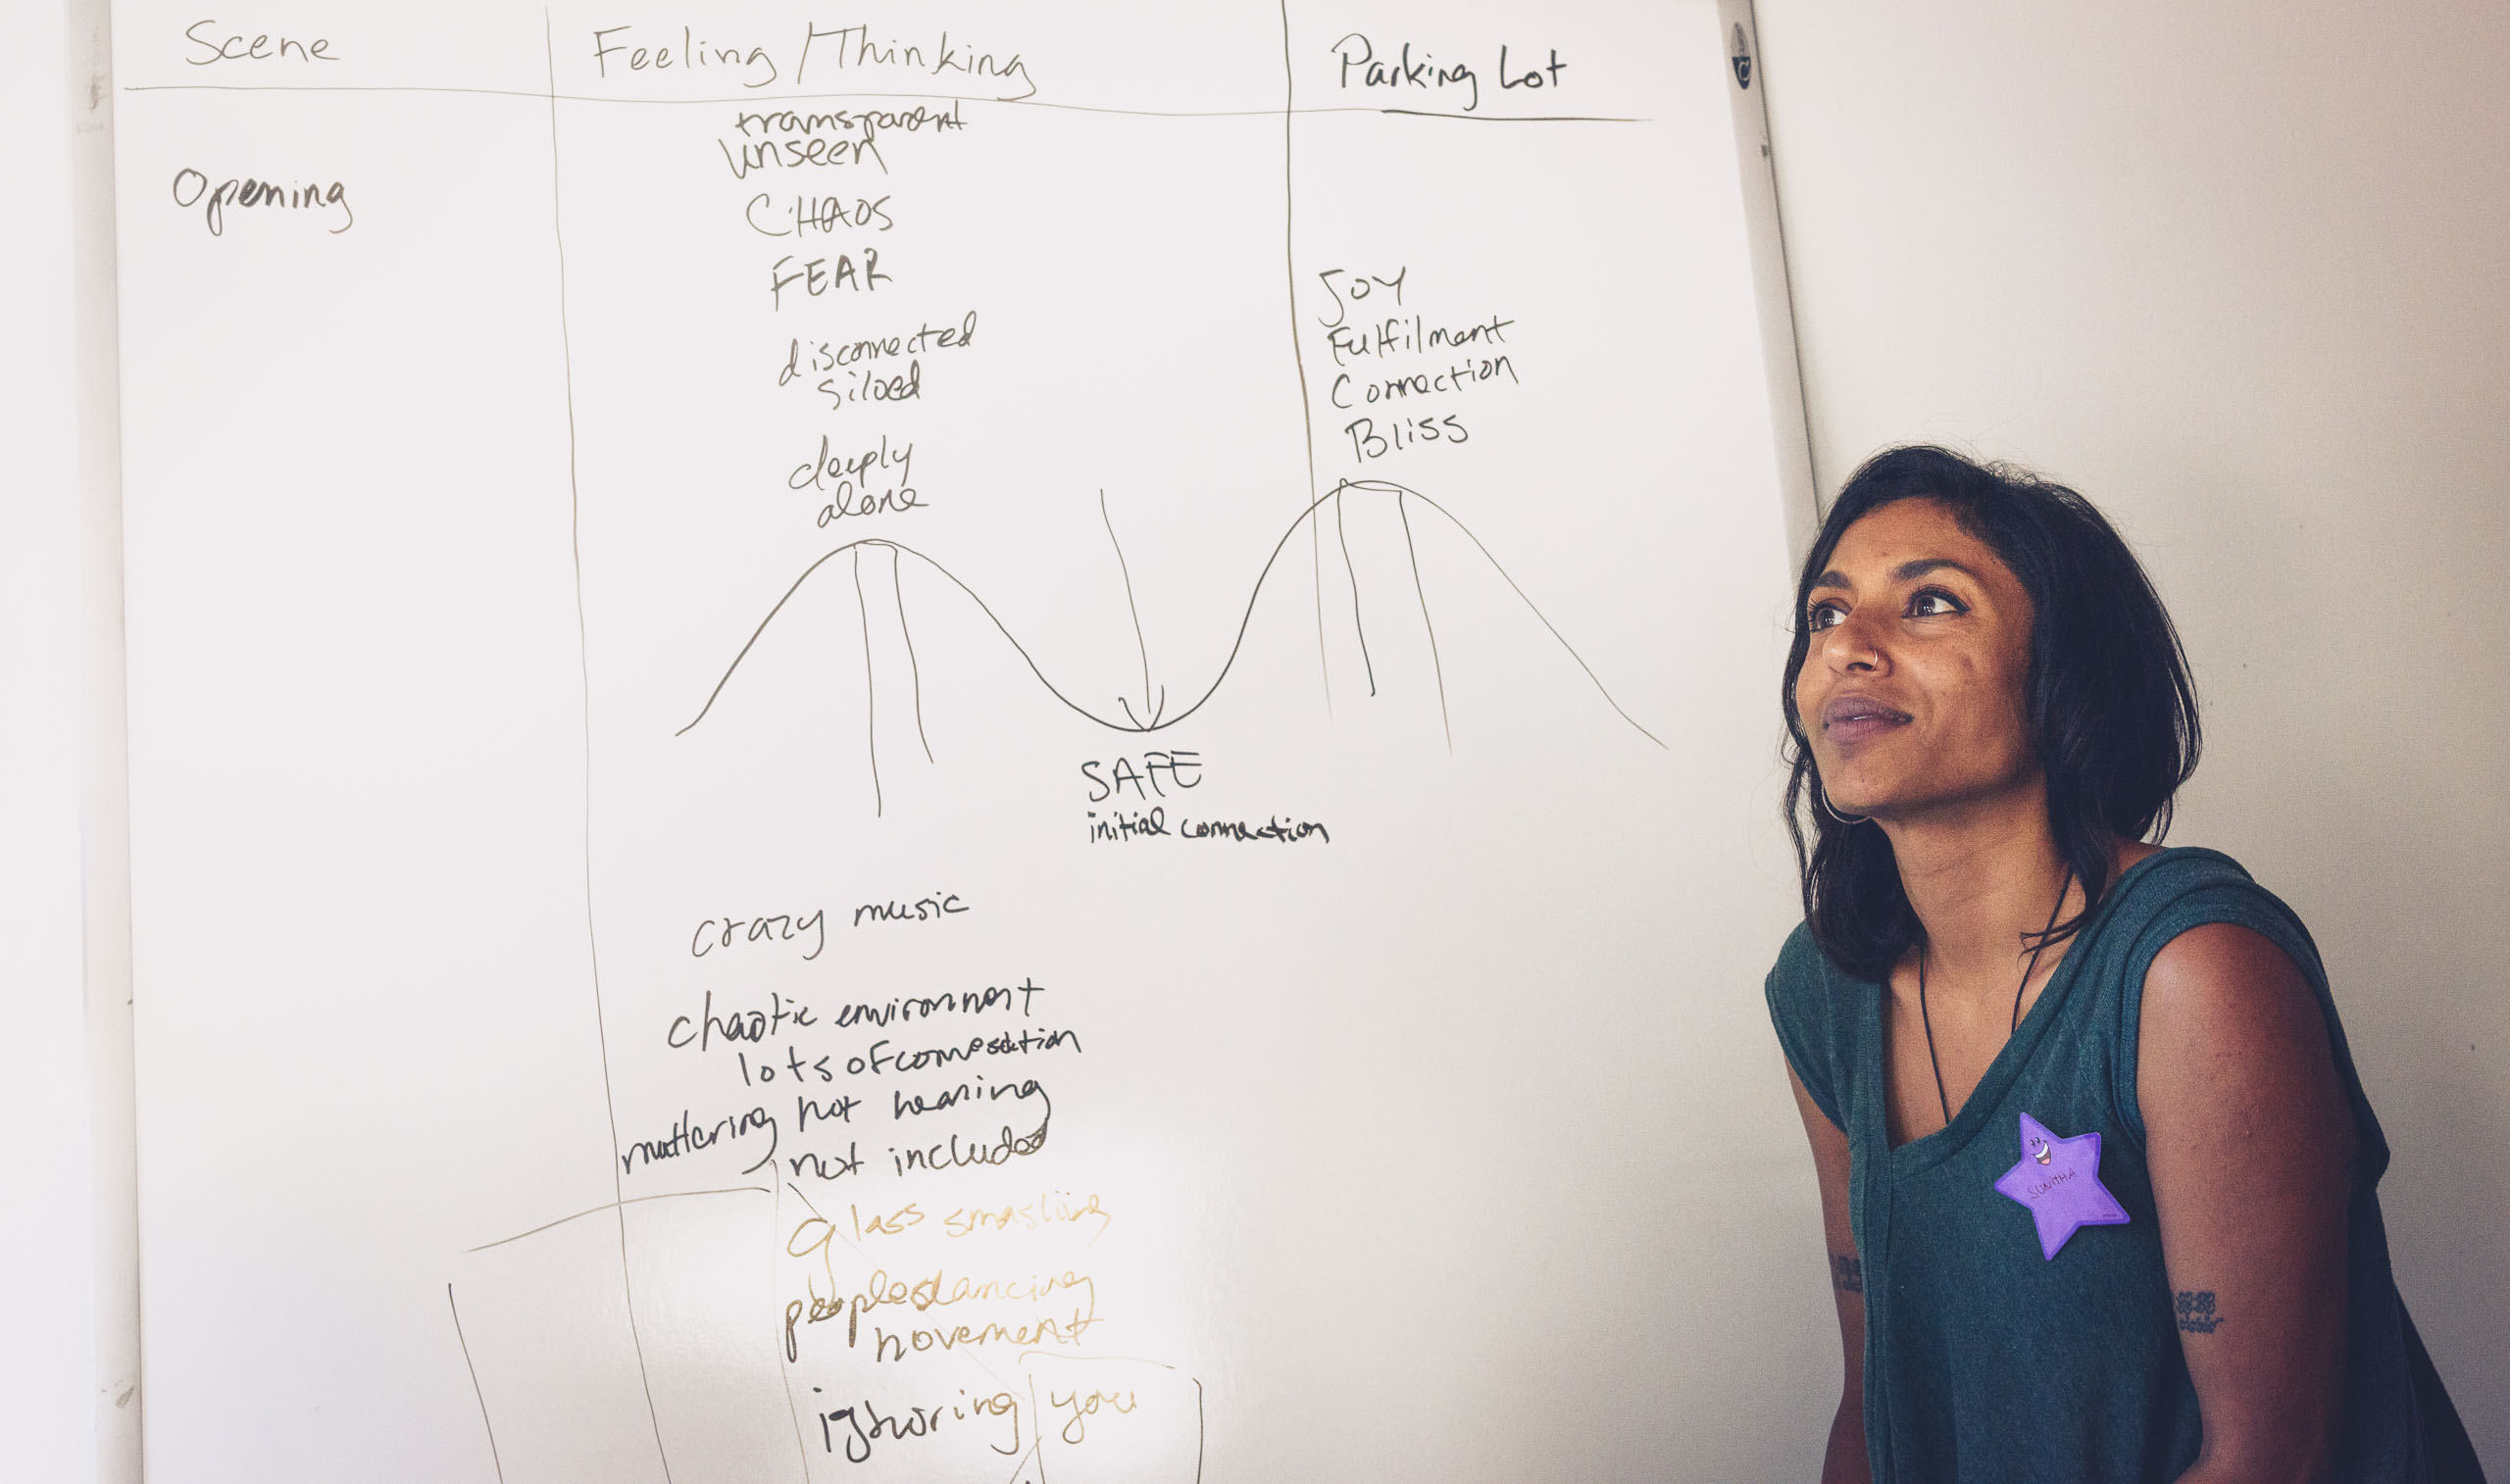 Scene
Feeling/Thinking
Parking Lot
Opening
transparent
unseen
CHAOS
FEAR
disconnected
siloed
deeply
alone
JOY
Fulfilment
Connection
Bliss
SAFE
initial connection
crazy music
chaotic environment
lots of
muttering not hearing
not included
Glass smashing
people dancing
movement
ignoring you
SUNITHA